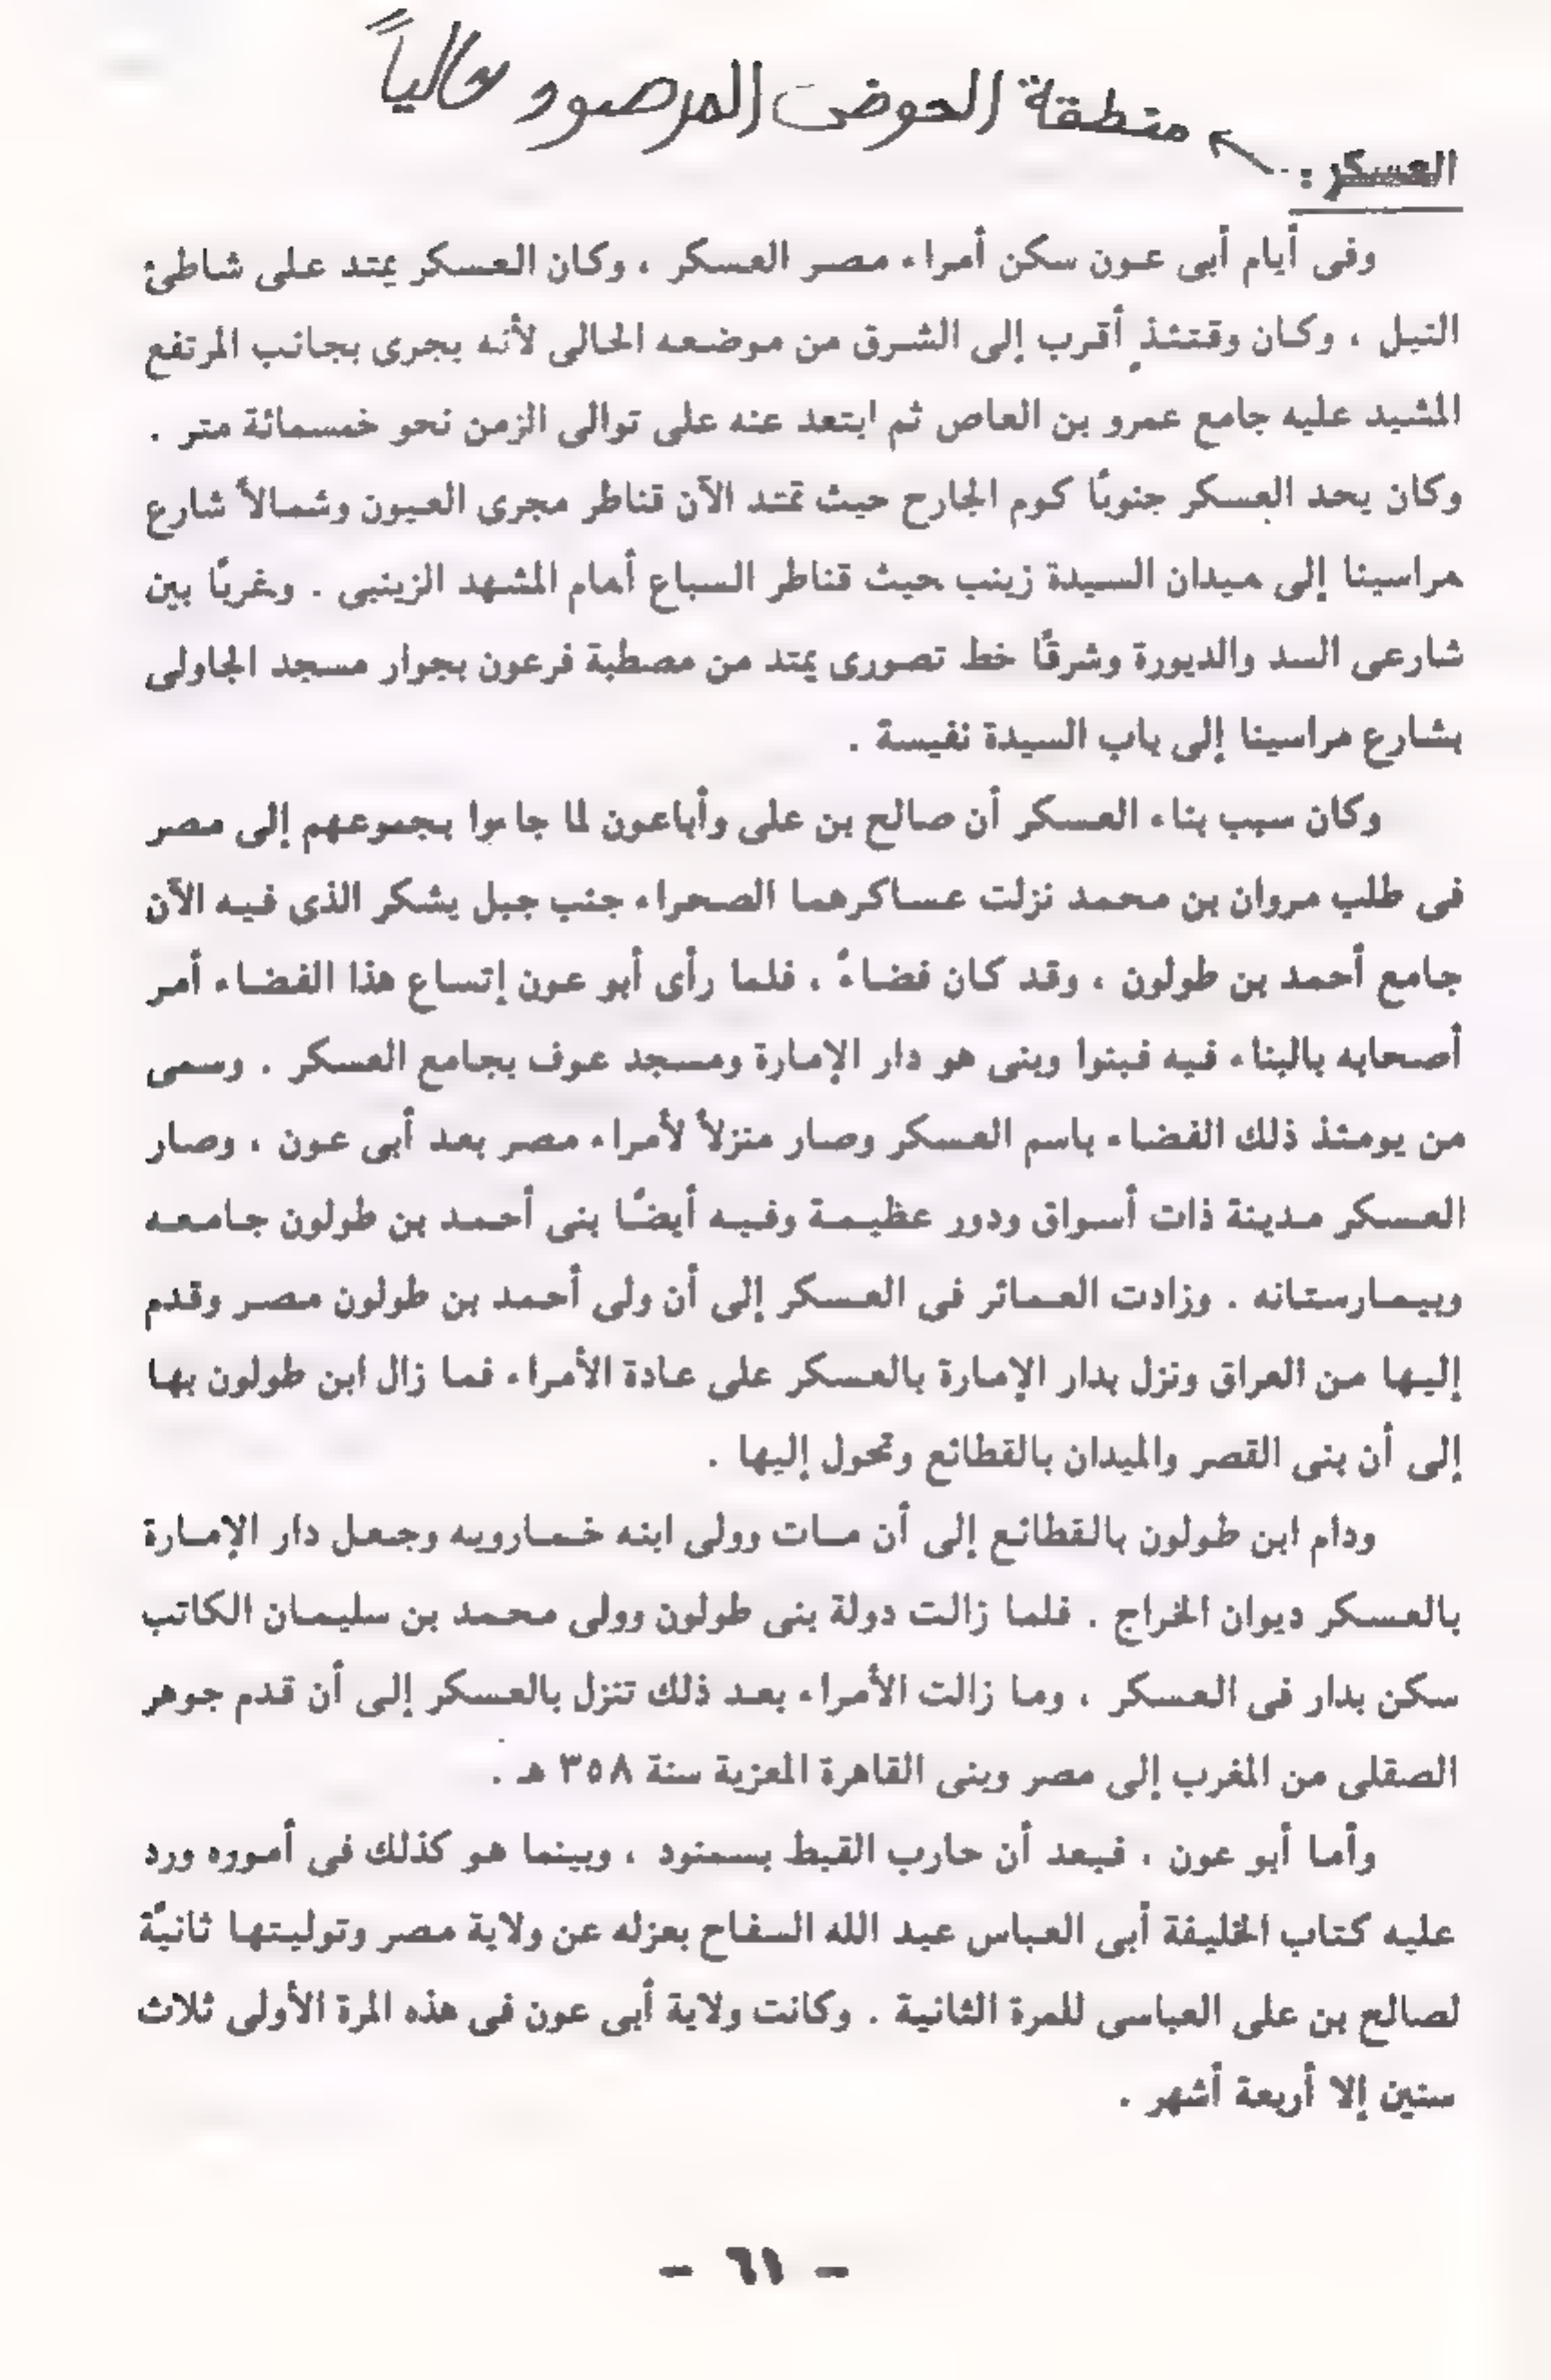 منطقة الحوض المرصود حالياً
العسكر :
وفى أيام أبى عون سكن أمراء مصر العسكر ، وكان العسكر يمتد على شاطئ
النيل ، وكان وقتئذٍ أقرب إلى الشرق من موضعه الحالى لأنه يجرى بجانب المرتفع
المشيد عليه جامع عمرو بن العاص ثم ابتعد عنه على توالى الزمن نحو خمسمائة متر .
وكان يحد العسكر جنوبًا كوم الجارح حيث تمتد الآن قناطر مجرى العيون وشمالاً شارع
مراسينا إلى ميدان السيدة زينب حيث قناطر السباع أمام المشهد الزينبى . وغربًا بين
شارعى السد والديورة وشرقًا خط تصورى يمتد من مصطبة فرعون بجوار مسجد الجاولى
بشارع مراسينا إلى باب السيدة نفيسة .
وكان سبب بناء العسكر أن صالح بن على وأباعون لما جاءوا بجموعهم إلى مصر
فى طلب مروان بن محمد نزلت عساكرهما الصحراء جنب جبل يشكر الذى فيه الآن
جامع أحمد بن طولون ، وقد كان فضاءً ، فلما رأى أبو عون إتساع هذا الفضاء أمر
أصحابه بالبناء فيه فبنوا وبنى هو دار الإمارة ومسجد عوف بجامع العسكر . وسمى
من يومئذ ذلك الفضاء باسم العسكر وصار منزلاً لأمراء مصر بعد أبى عون ، وصار
العسكر مدينة ذات أسواق ودور عظيمة وفيه أيضًا بنى أحمد بن طولون جامعه
وبيمارستانه . وزادت العمائر فى العسكر إلى أن ولى أحمد بن طولون مصر وقدم
إليها من العراق ونزل بدار الإمارة بالعسكر على عادة الأمراء فما زال ابن طولون بها
إلى أن بنى القصر والميدان بالقطائع وتحول إليها .
ودام ابن طولون بالقطائع إلى أن مات وولى ابنه خمارويه وجعل دار الإمارة
بالعسكر ديوان الخراج . فلما زالت دولة بنى طولون وولى محمد بن سليمان الكاتب
سكن بدار فى العسكر ، وما زالت الأمراء بعد ذلك تنزل بالعسكر إلى أن قدم جوهر
الصقلى من المغرب إلى مصر وبنى القاهرة المعزية سنة ٣٥٨ هـ .
وأما أبو عون ، فبعد أن حارب القبط بسمنود ، وبينما هو كذلك فى أموره ورد
عليه كتاب الخليفة أبى العباس عبد الله السفاح بعزله عن ولاية مصر وتوليتها ثانيًة
لصالح بن على العباسى للمرة الثانية . وكانت ولاية أبى عون فى هذه المرة الأولى ثلاث
سنين إلا أربعة أشهر .
– ٦١ –